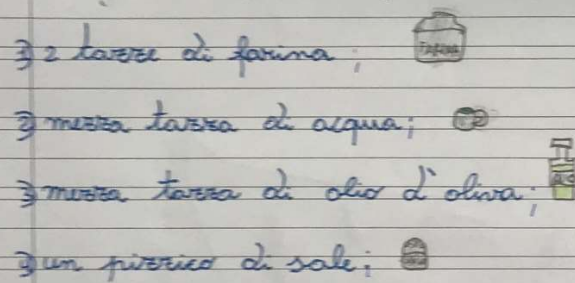 2 tazze di farina; FARINA
mezza tazza di acqua;
mezza tazza di olio d'oliva;
un pizzico di sale;